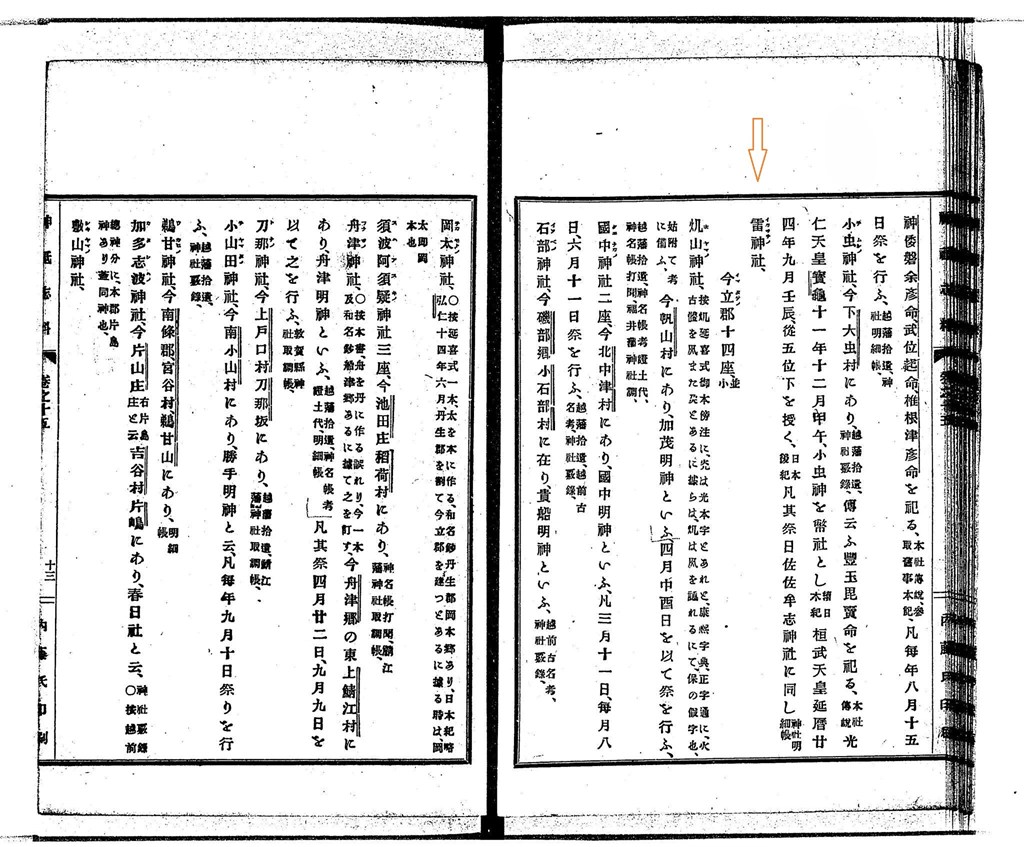 神倭磐余彥命、武位起命椎根津彥命を祀る、本社傳說、參取舊事本記、凡每年八月十五
日祭を行ふ、越藩拾遺、神社明細帳、
小虫神社、今下大虫村にあり、越藩拾遺、神社覈錄、傳云ふ豐玉毘賣命を祀る、本社傳說光
仁天皇寶龜十一年十二月甲午、小虫神を幣社とし續日本紀桓武天皇延曆廿
四年九月壬辰、從五位下を授く、日本後紀凡其祭日佐佐牟志神社に同し神社明細帳
雷神社、
今立郡十四座、並小
㞦山神社、
姑附て考に備ふ、今帆山村にあり、加茂明神といふ、四月中酉日を以て祭を行ふ、
越藩拾遺、神名帳考證土代、神名帳打聞、福井藩神社調、
國中神社二座、今北中津村にあり、國中明神といふ、凡三月十一日、每月八
日、六月十一日祭を行ふ、越前古名考、神社覈錄、
石部神社、今磯部鄕小石部村に在り、貴船明神といふ、越前古名考、神社覈錄、
岡太神社、〇按延喜式一本、太を本に作る、和名鈔丹生郡岡本鄕あり、日本紀略弘仁十四年六月丹生郡を割て今立郡を建つとあるに據る時は、岡
太即岡本也
須波阿須疑神社三座、今池田庄稻荷村にあり、神名帳打聞、鯖江藩神社取調帳、
舟津神社、〇按本書、舟を丹に作る誤れり、今一本及和名鈔船津鄕あるに據て之を訂す、今舟津鄕の東上鯖江村に
あり、舟津明神といふ、越藩拾遺、神名帳考證土代、明細帳凡其祭四月廿二日、九月九日を
以て之を行ふ、敦賀縣神社取調帳、
刀那神社、今上戶口村刀那坂にあり、越藩拾遺、鯖江藩神社取調帳、
小山田神社、今南小山村にあり、勝手明神と云、凡每年九月十日祭りを行
ふ、越藩拾遺、神社覈錄、
鵜甘神社、今南條郡、宮谷村、鵜甘山にあり、明細帳
加多志波神社、今片山庄右片島庄と云吉谷村片嶋にあり、春日社と云、神社覈錄〇按越前
總神分に、本郡片島神あり蓋同神也、
敷山神社、
神祇志料
卷之十五
十三
內藤氏印刷